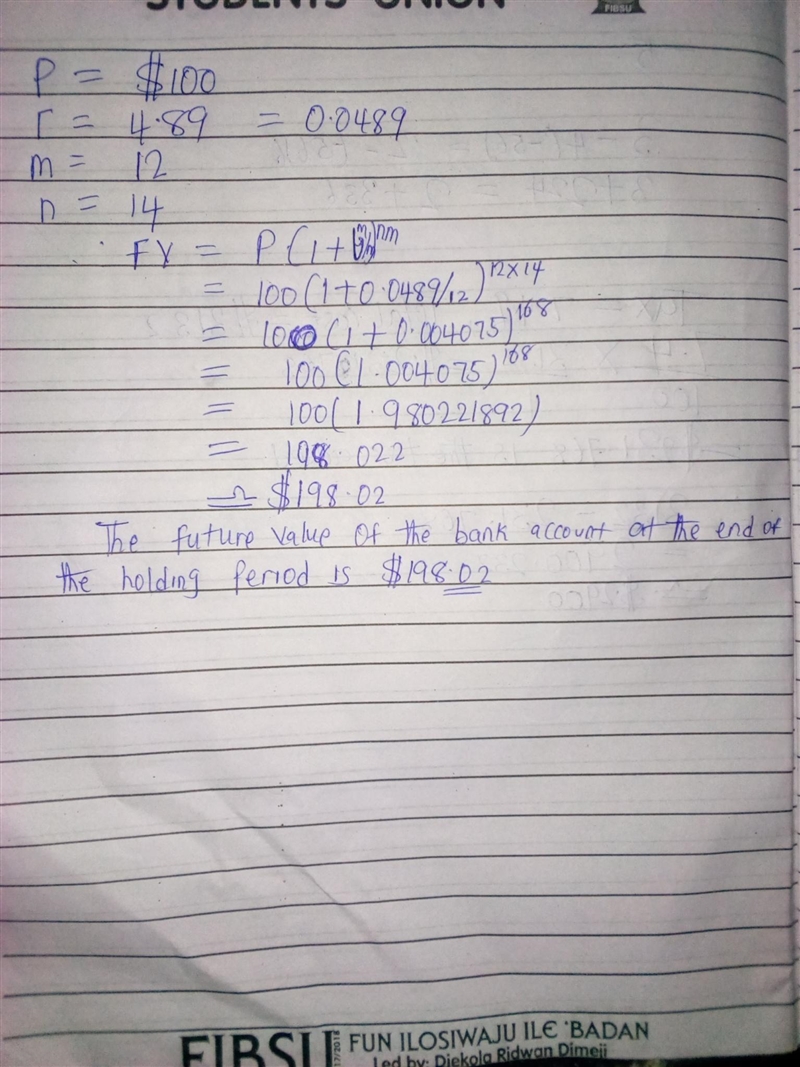 STUDENTS' UNION
FIBSU
P = $100
r = 4.89 = 0.0489
m = 12
n = 14
∴ FV = P(1+ )^nm
= 100(1+0.0489/12)^12×14
= 100(1+0.004075)^168
= 100(1.004075)^168
= 100(1.980221892)
= 198.022
≏ $198.02
The future value of the bank account at the end of
the holding period is $198.02
FIBSU 17/2018 FUN ILOSIWAJU ILE 'BADAN
Led by: Diekola Ridwan Dimeji